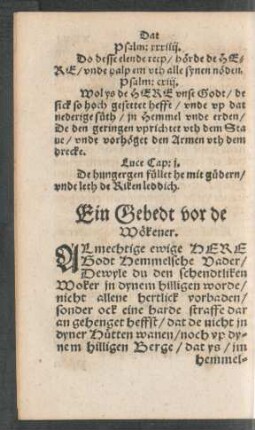 Dat
Psalm: xxxiiij.
Do desse elende reep / hörde de HE-
RE / vnde halp em vth alle synen nöden.
Psalm: cxiij.
Wol ys de HERE vnse Godt / de
sick so hoch gesettet hefft / vnde vp dat
nederige süth / jn Hemmel vnde erden /
De den geringen vprichtet vth dem Sta
ue / vnde vorhöget den Armen vth dem
drecke.
Luce Cap: j.
De hungergen füllet he mit güdern /
vnde leth de Riken leddich.
Ein Gebedt vor de
Wökener.
ALmechtige ewige HERE
Godt Hemmelsche Vader /
Dewyle du den schendtliken
Woker in dynem hilligen worde /
nicht allene hertlick vorbaden /
sonder ock eine harde straffe dar
an gehenget heffst / dat de nicht in
dyner Hütten wanen / noch vp dy-
nem hilligen Berge / dat ys / jm
hemmel-